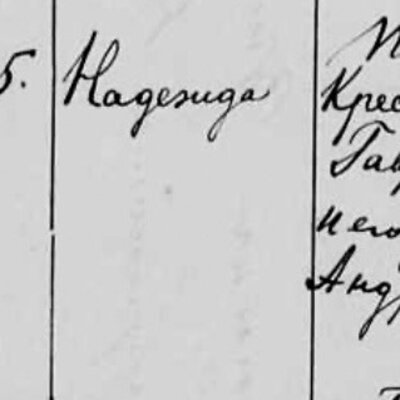 5. Надежда
Крес
Гав
и его
Анд